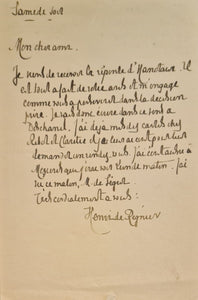 Samedi soir
Mon cher ami.
Je viens de recevoir la réponse d'Hanotaux. Il
est tout à fait de notre avis et m'engage
comme vous à persévérer dans la décision
prise. Je vais donc écrire dans ce sens à
Deschanel. J'ai déjà mis des cartes chez
et Claretie et je leur ai écrit pour leur
demander un rendez-vous. J'ai écrit aussi à
que j'irai voir lundi matin. J'ai
vu ce matin, M. de Ségur.
Très cordialement à vous.
Henri de Régnier